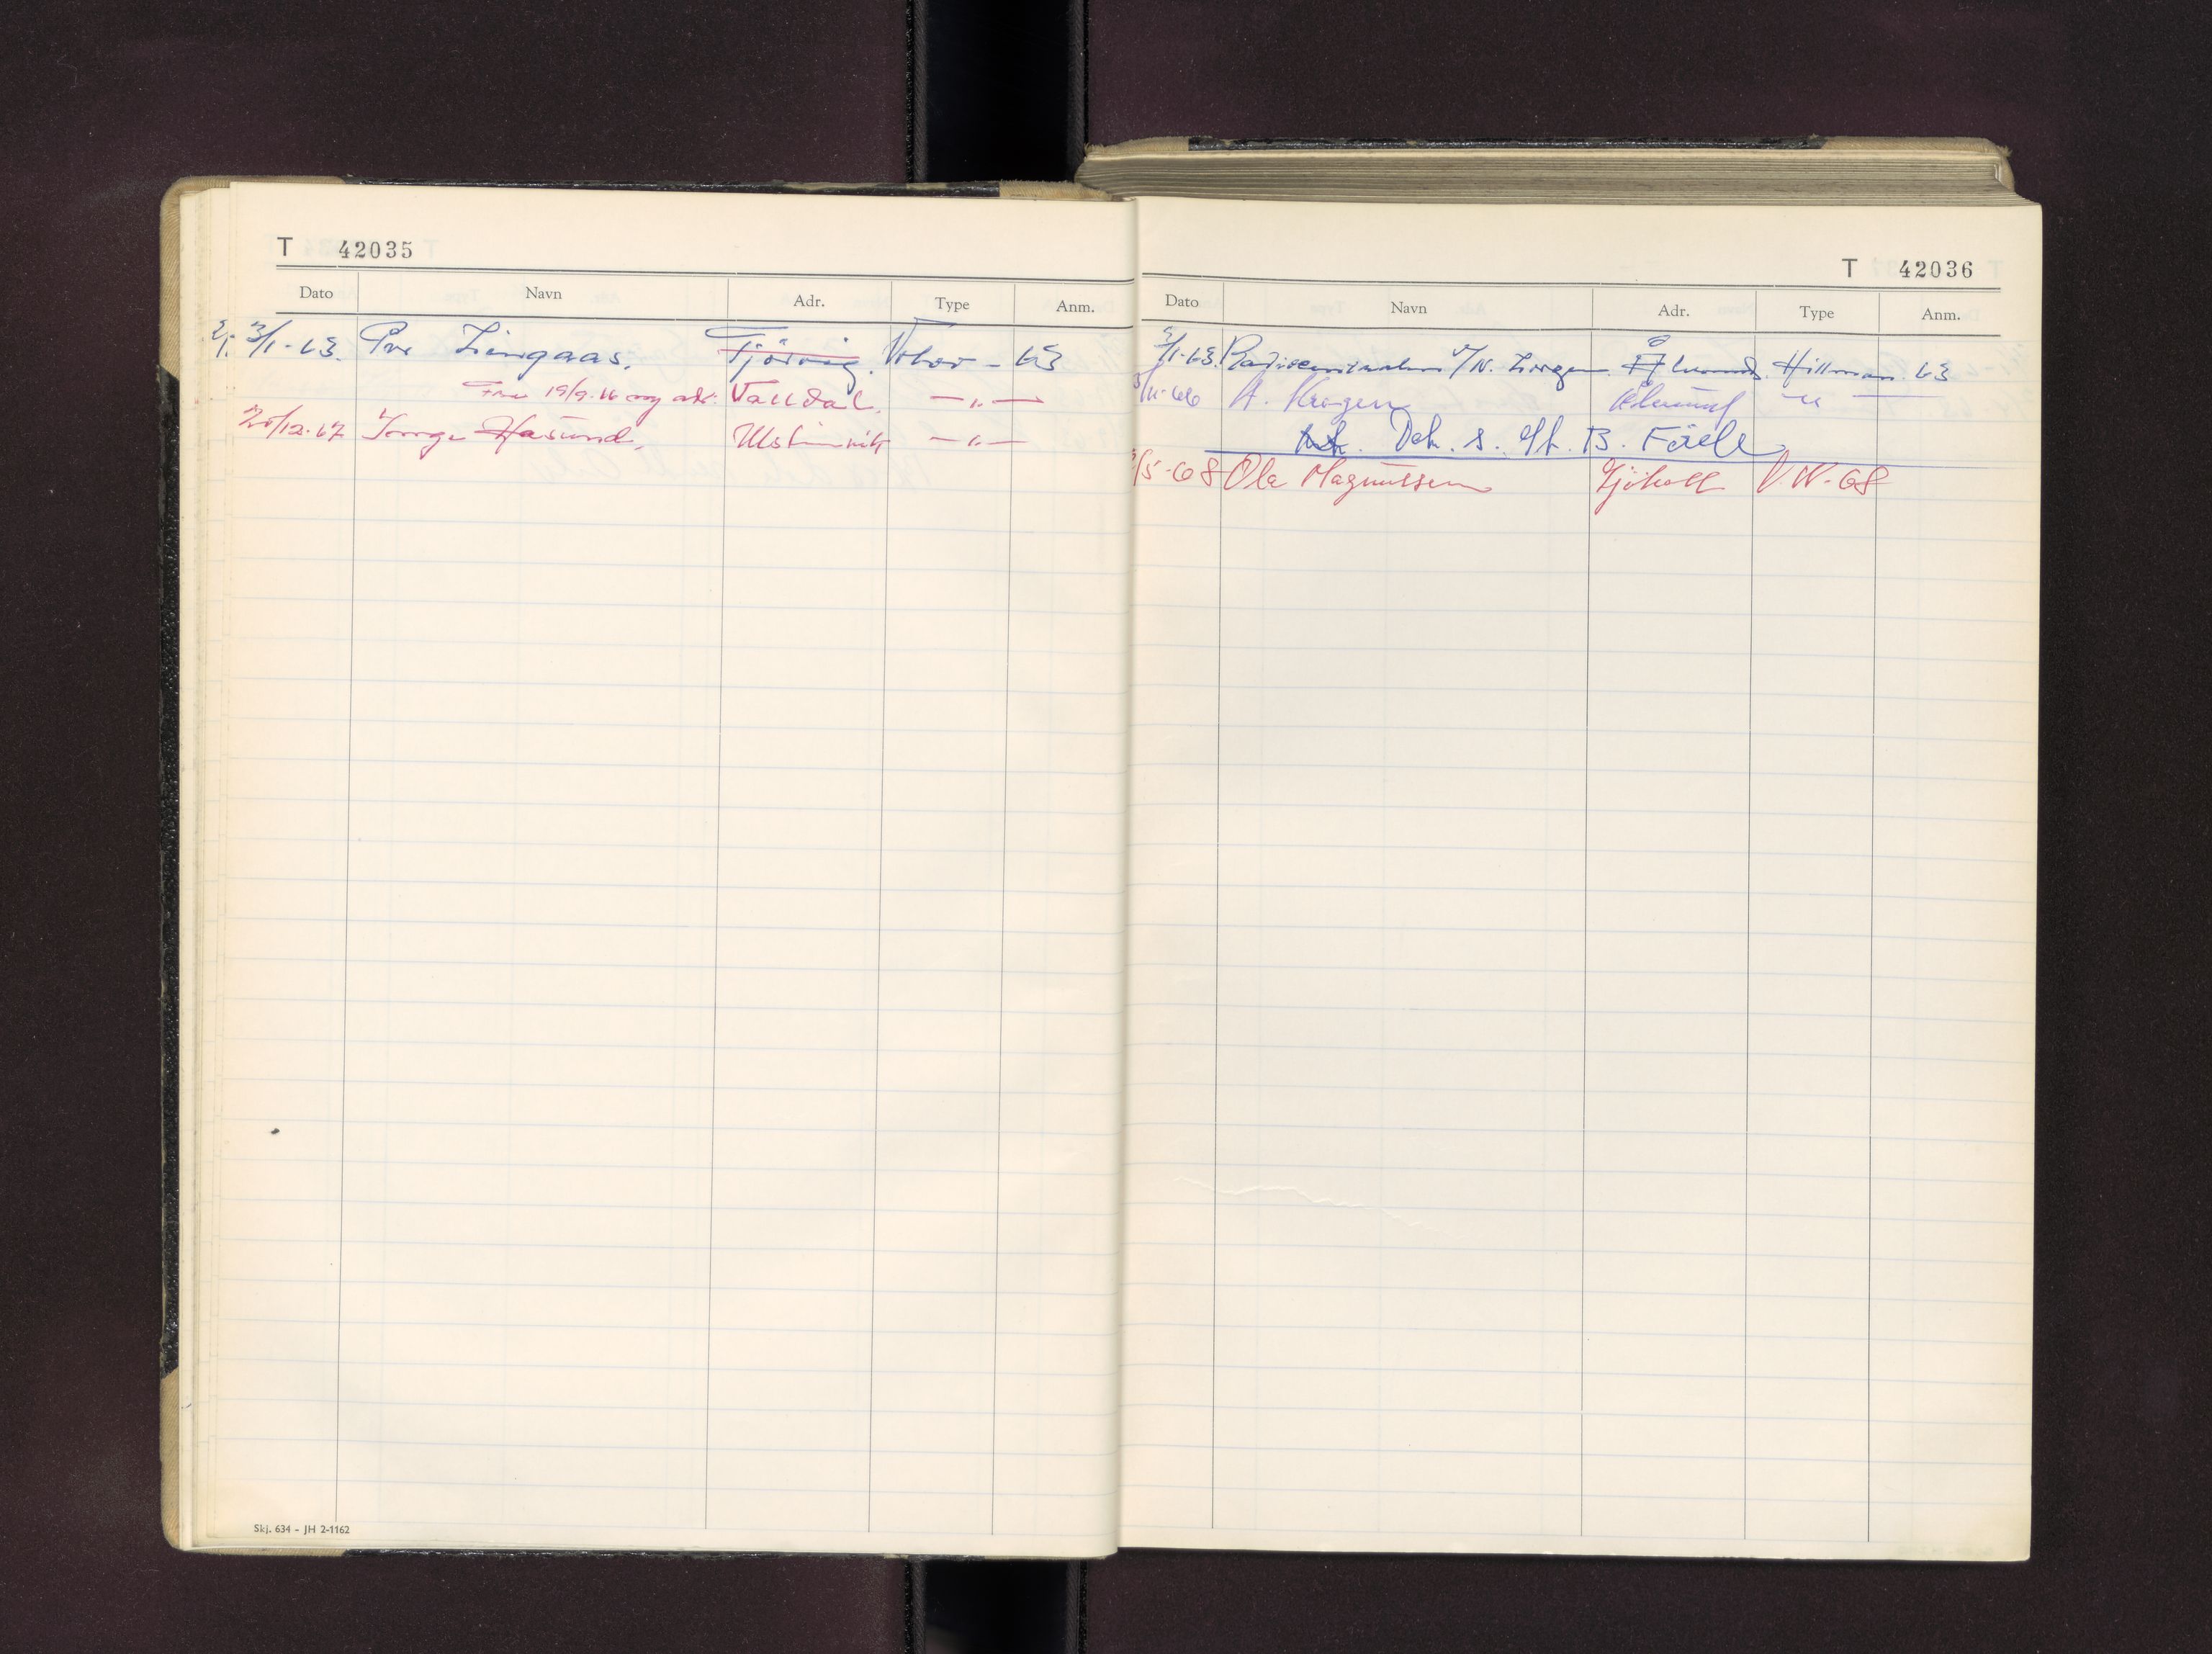 T 42035
Dato Navn Adr. Type Anm.
3/1-63. Per Lingaas. Tjörvåg. Volvo - 63
Fra 19/9-66 ny adr. Valldal. — " —
20/12-67 Inge Hasund. Ulsteinvik — " —
Skj. 634 - JH 2-1162
T 42036
Dato Navn Adr. Type Anm.
/1-63. Radiosentralen v/N. Ålesund. Hillman. 63
/11-66 A. Krogen Ålesund — " —
Deh. s. st. B. Foell
/5-68 Ola Magnussen Gjöholt V.W-68